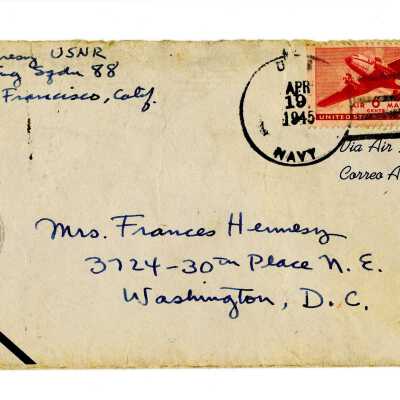 USNR
88
Francisco, Calif.
U.S.
APR
19
1945
NAVY
AIR 6 MA
CENTS
UNITED STATES
Via Air
Correo A
Mrs. Frances Hennesy
3724-30th Place N. E.
Washington, D. C.